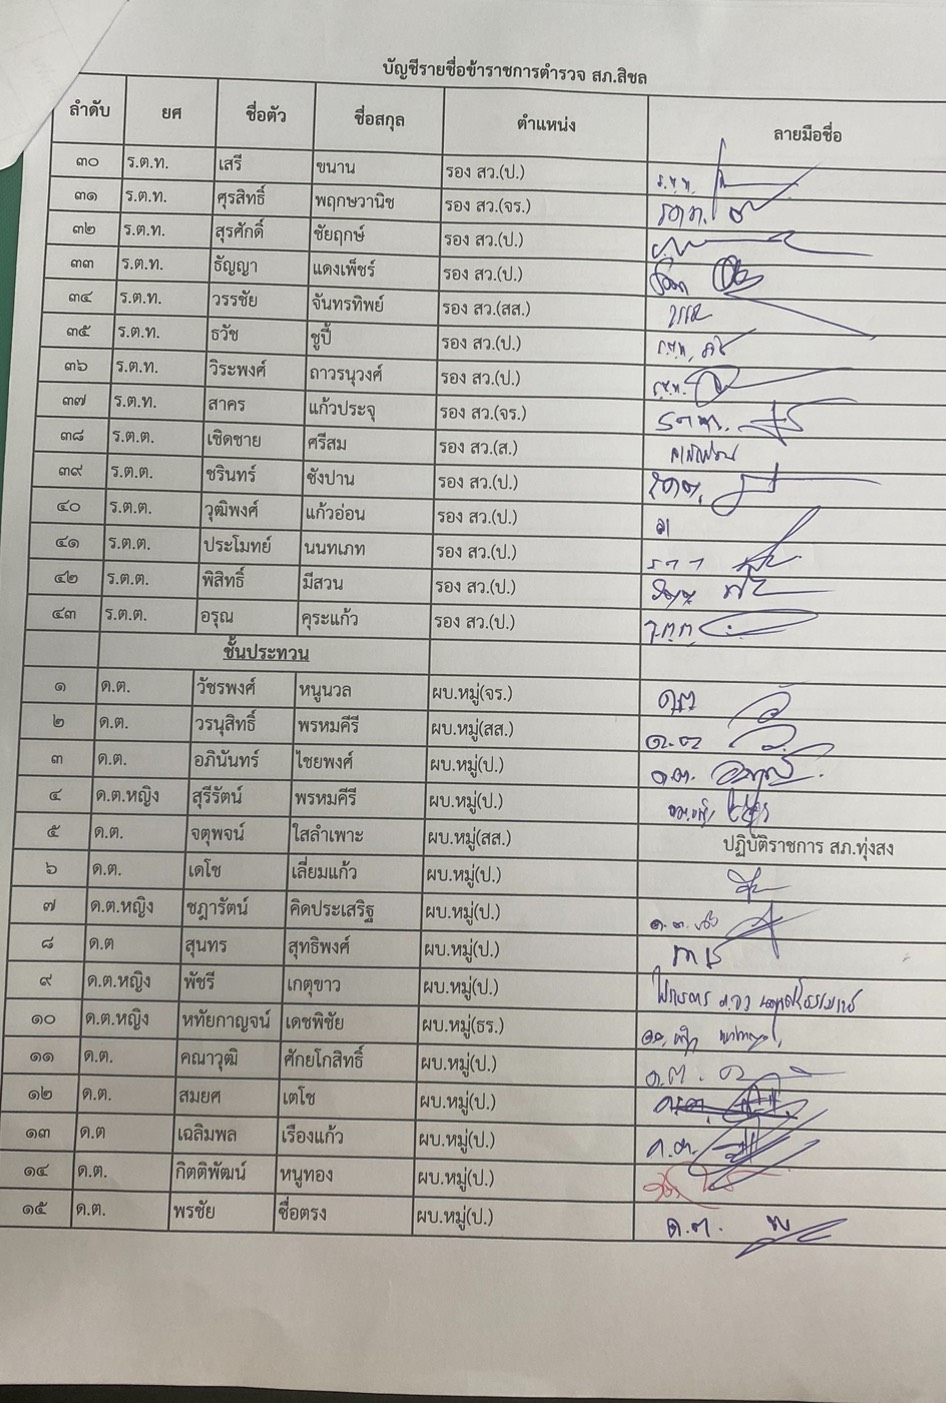 บัญชีรายชื่อข้าราชการตำรวจ สภ.สิชล
ลำดับ ยศ ชื่อตัว ชื่อสกุล ตำแหน่ง ลายมือชื่อ
๓๐ ร.ต.ท. เสรี ขนาน รอง สว.(ป.)
๓๑ ร.ต.ท. ศุรสิทธิ์ พฤกษวานิช รอง สว.(จร.)
๓๒ ร.ต.ท. สุรศักดิ์ ชัยฤกษ์ รอง สว.(ป.)
๓๓ ร.ต.ท. ธัญญา แดงเพ็ชร์ รอง สว.(ป.)
๓๔ ร.ต.ท. วรรชัย จันทรทิพย์ รอง สว.(สส.)
๓๕ ร.ต.ท. ธวัช ชูปี้ รอง สว.(ป.)
๓๖ ร.ต.ท. วิระพงศ์ ถาวรนุวงศ์ รอง สว.(ป.)
๓๗ ร.ต.ท. สาคร แก้วประจุ รอง สว.(จร.)
๓๘ ร.ต.ต. เชิดชาย ศรีสม รอง สว.(ส.)
๓๙ ร.ต.ต. ชรินทร์ ชังปาน รอง สว.(ป.)
๔๐ ร.ต.ต. วุฒิพงศ์ แก้วอ่อน รอง สว.(ป.)
๔๑ ร.ต.ต. ประโมทย์ นนทเภท รอง สว.(ป.)
๔๒ ร.ต.ต. พิสิทธิ์ มีสวน รอง สว.(ป.)
๔๓ ร.ต.ต. อรุณ คุระแก้ว รอง สว.(ป.)
ชั้นประทวน
๑ ด.ต. วัชรพงศ์ หนูนวล ผบ.หมู่(จร.)
๒ ด.ต. วรนุสิทธิ์ พรหมคีรี ผบ.หมู่(สส.) ด.ต.
๓ ด.ต. อภินันทร์ ไชยพงศ์ ผบ.หมู่(ป.) ด.ต.
๔ ด.ต.หญิง สุรีรัตน์ พรหมคีรี ผบ.หมู่(ป.)
๕ ด.ต. จตุพจน์ ใสลำเพาะ ผบ.หมู่(สส.) ปฏิบัติราชการ สภ.ทุ่งสง
๖ ด.ต. เดโช เลี่ยมแก้ว ผบ.หมู่(ป.)
๗ ด.ต.หญิง ชฎารัตน์ คิดประเสริฐ ผบ.หมู่(ป.)
๘ ด.ต สุนทร สุทธิพงศ์ ผบ.หมู่(ป.)
๙ ด.ต.หญิง พัชรี เกตุขาว ผบ.หมู่(ป.)
๑๐ ด.ต.หญิง หทัยกาญจน์ เดชพิชัย ผบ.หมู่(ธร.)
๑๑ ด.ต. คณาวุฒิ ศักยโกสิทธิ์ ผบ.หมู่(ป.) ด.ต.
๑๒ ด.ต. สมยศ เตโช ผบ.หมู่(ป.)
๑๓ ด.ต เฉลิมพล เรืองแก้ว ผบ.หมู่(ป.) ด.ต.
๑๔ ด.ต. กิตติพัฒน์ หนูทอง ผบ.หมู่(ป.)
๑๕ ด.ต. พรชัย ชื่อตรง ผบ.หมู่(ป.) ด.ต.